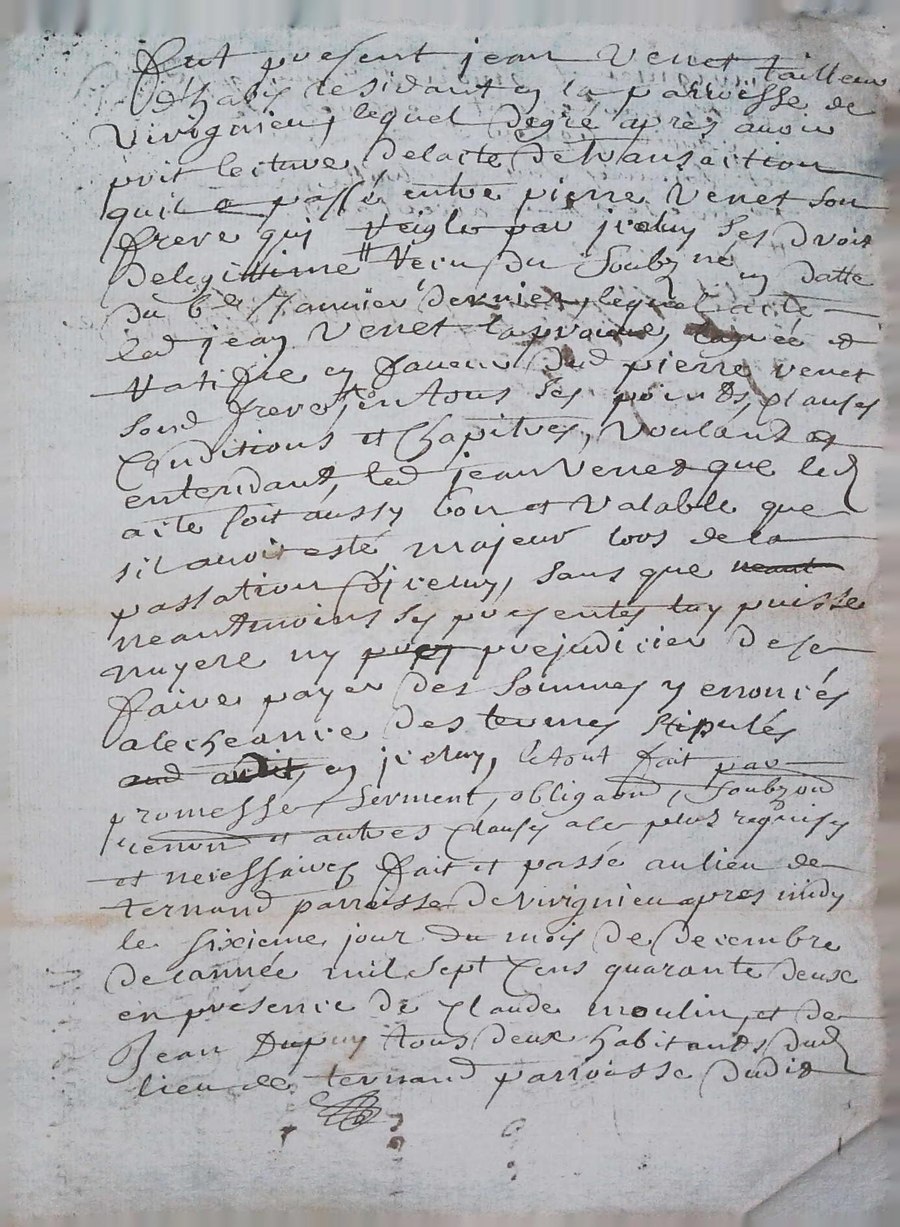 fut present jean Venet tailleur
d'habis residant en la parroisse de
Virignieu, lequel degré apres avoir
prit lecture delacte de transaction
quil a passé entre pierre Venet son
frere qui regle par jceluy ses droit
delegittime recu du soubzné en datte
du 6e Janvier dernier, lequel acte
led jean Venet laprouve, et
Ratiffie en faveur dud pierre venet
sond frere en tous ses points, clauses
Conditions et Chapitres, Voulant et
entendant, led jean Venet que led
acte soit aussy bon et Valable que
sil avoit esté majeur lors de la
passation djceluy, sans que neant
neantmoins ses presentes luy puisse
nuyere ny prejudicier de se
faire payer des sommes y enoncés
alecheance des termes stipulés
en jceluy, le tout fait par
promesse serment, obligaon, soubzon
renon et autres clauses ace plus requises
et necessaires fait et passé au lieu de
ternand parroisse de virignieu apres midy
le sixieme jour du mois de decembre
de lannée mil sept cens quarante deux
en presence de claude moulin, et de
Jean Dupuy tous deux habitants dud
lieu de ternand parroisse dudit